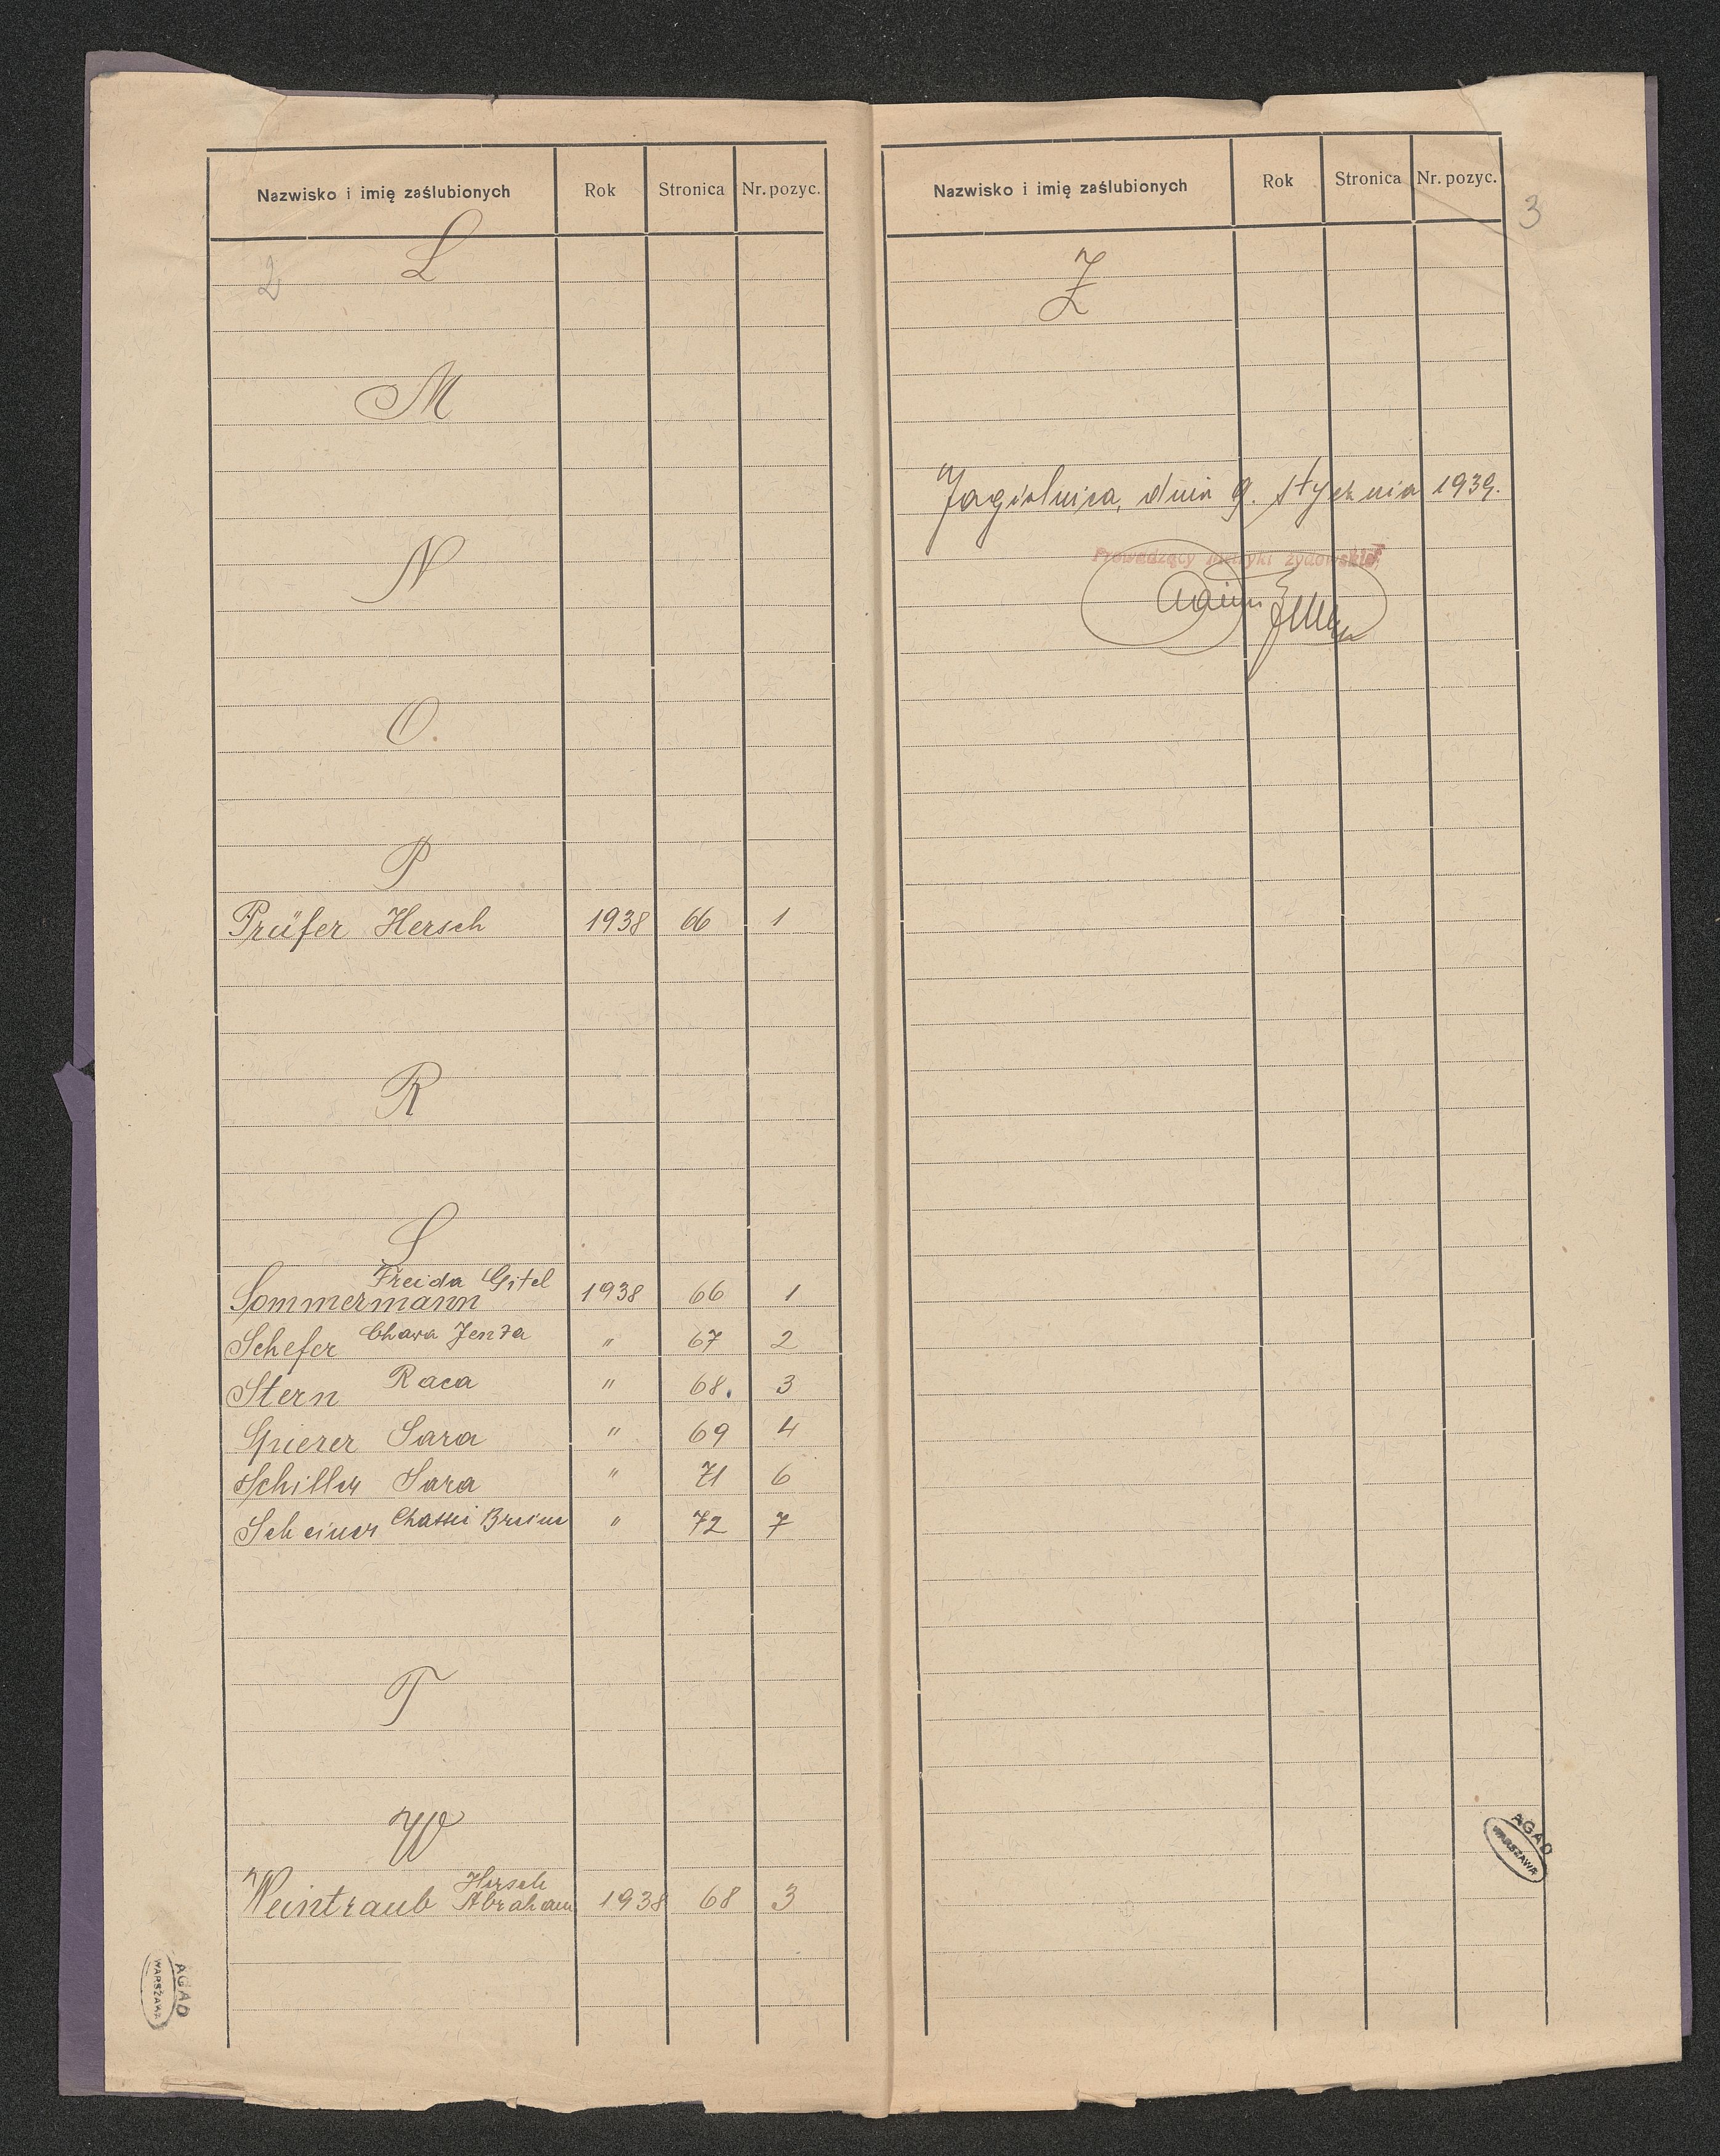 Nazwisko i imię zaślubionych Rok Stronica Nr. pozyc.
2
L
M
N
O.
P
Prüfer Hersch 1938 66 1
R
S
Sommermann Freida Gitel 1938 66 1
Schefer Chawa Jenta " 67 2
Stern Raca " 68. 3
Spierer Sara " 69 4
Schiller Sara " 71 6
Scheiner Chassie Breine " 72 7
T
W
Weintraub Hersch Abraham 1938 68 3
AGAD
WARSZAWA
Nazwisko i imię zaślubionych Rok Stronica Nr. pozyc.
3
Z
Jagielnica, dnia 9. stycznia 1939.
Prowadzący metryki żydowskie
AGAD
WARSZAWA